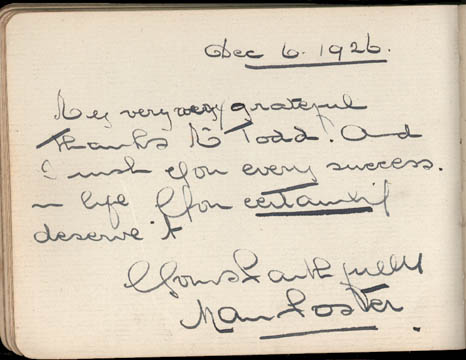 Dec 6. 1926.
My very very grateful
thanks Mr Todd. And
I wish you every success.
in life You certainly
deserve it
Yours faithfully
Foster.